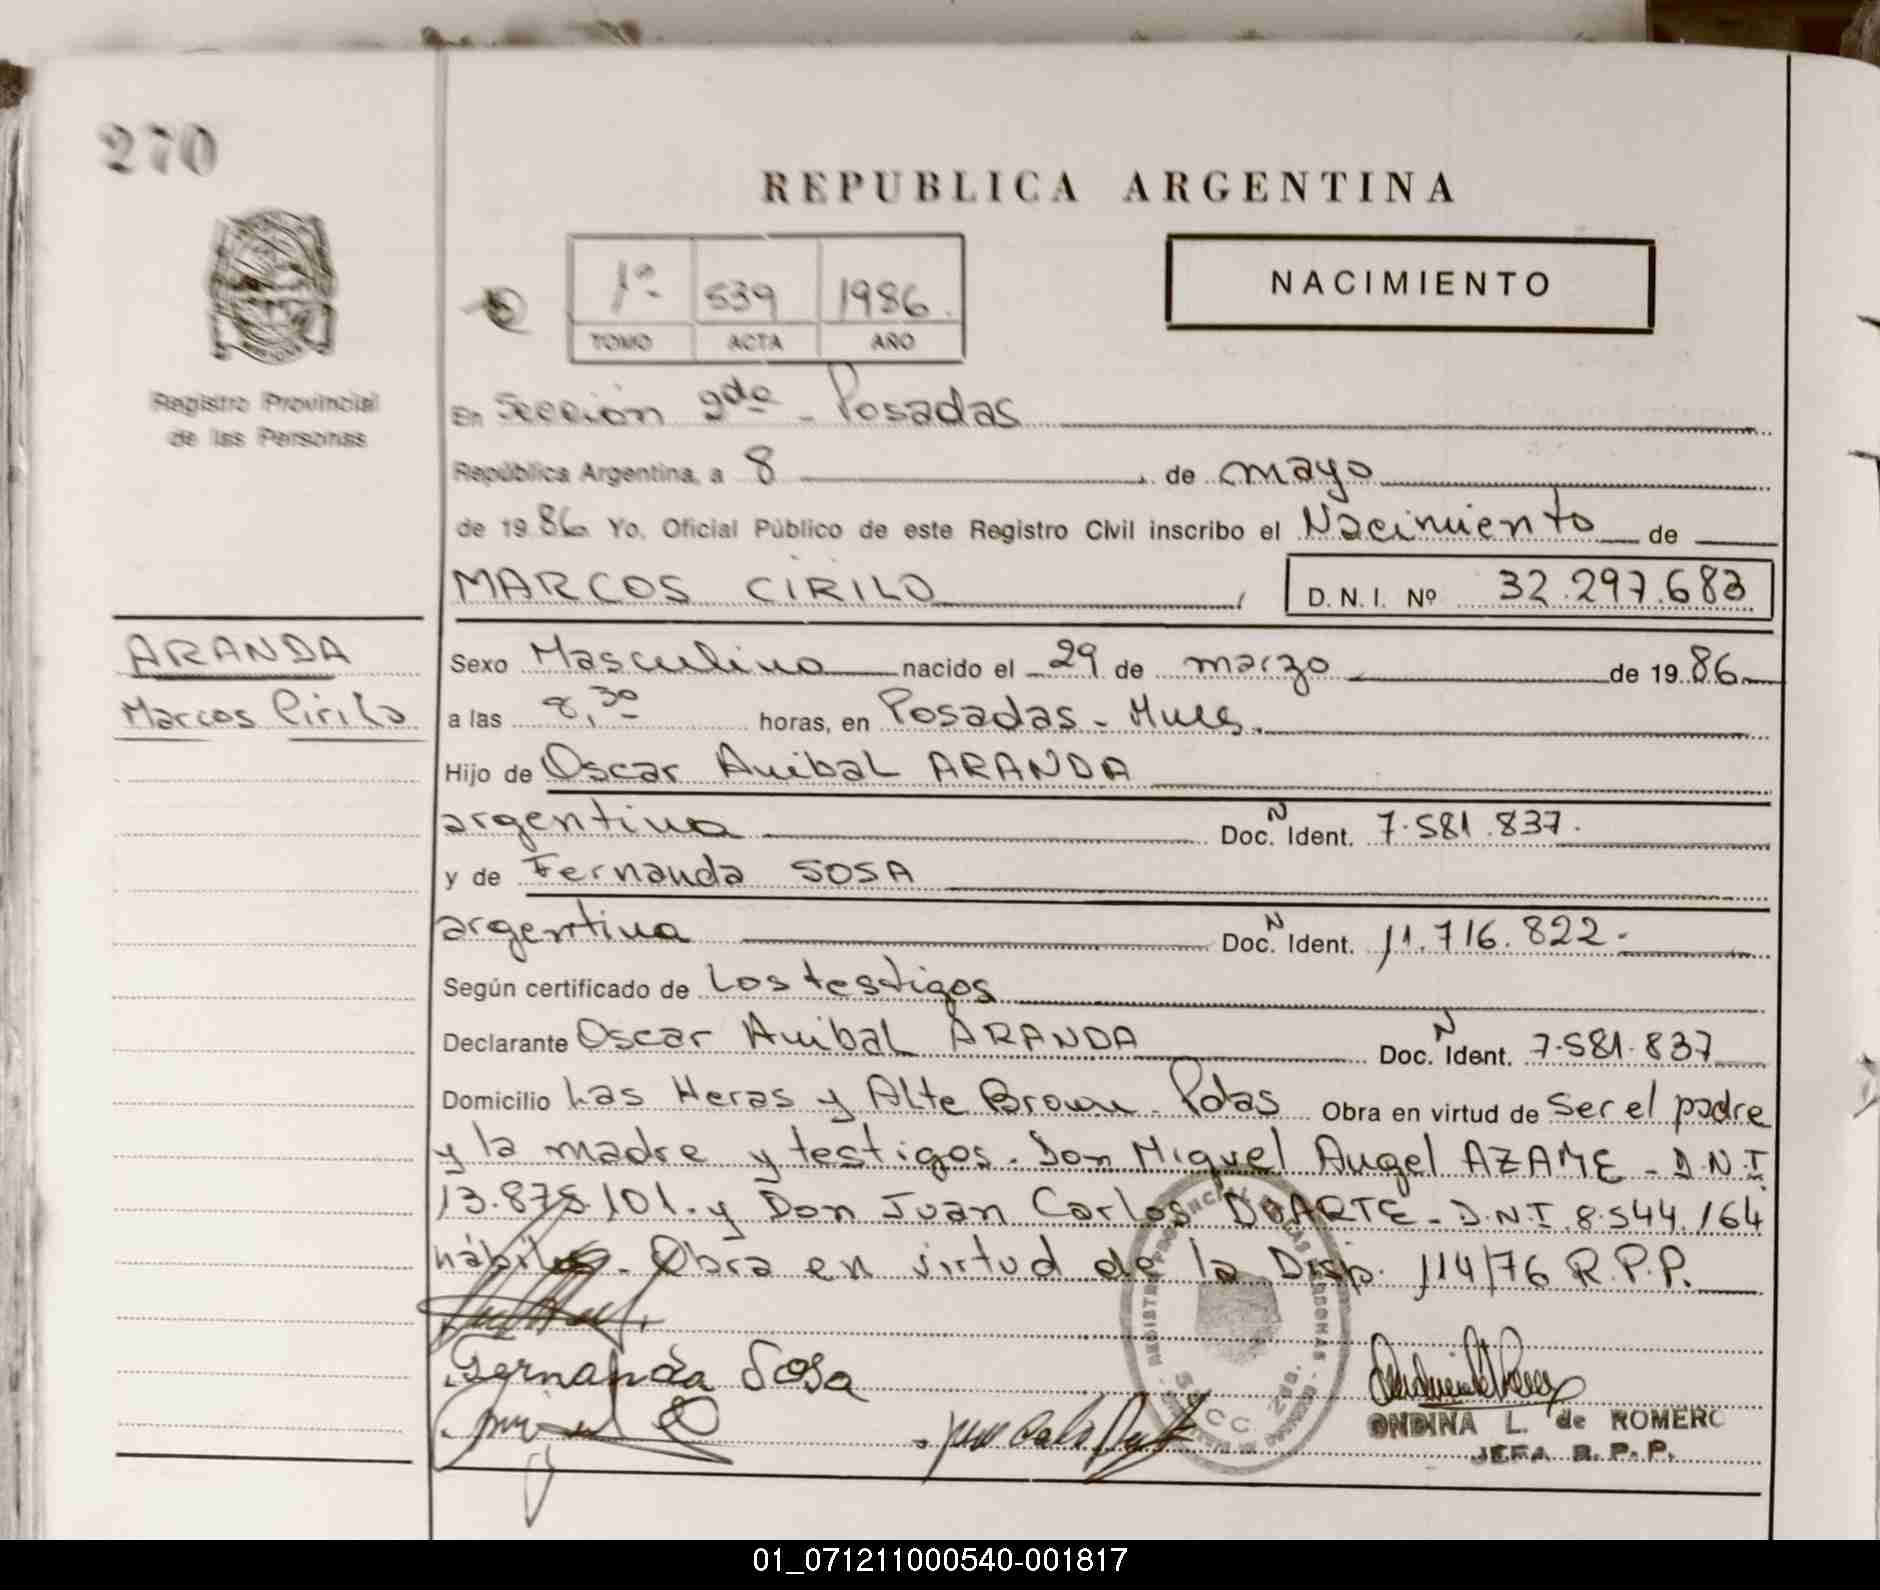 270
REPUBLICA ARGENTINA
NACIMIENTO
1º 539 1986
TOMO ACTA AÑO
Registro Provincial
de las Personas
En Sección 2da - Posadas
República Argentina, a 8 de mayo
de 1986 Yo, Oficial Público de este Registro Civil inscribo el Nacimiento de
MARCOS CIRILO D.N.I. Nº 32.297.683
ARANDA
Marcos Cirilo
Sexo Masculino nacido el 29 de marzo de 1986
a las 8,30 horas, en Posadas - Mnes.
Hijo de Oscar Anibal ARANDA
argentino Doc. N Ident. 7.581.837.
y de Fernanda SOSA
argentina Doc. N Ident. 11.716.822.
Según certificado de Los testigos
Declarante Oscar Anibal ARANDA Doc. N Ident. 7.581.837
Domicilio Las Heras y Alte Brown - Pdas Obra en virtud de ser el padre
y la madre y testigos. Don Miguel Angel AZAME - D.N.I
13.878.101. y Don Juan Carlos DUARTE - D.N.I 8.544.164
hábiles. Obra en virtud de la Disp. 114/76 R.P.P.
Fernanda Sosa
ONDINA L. de ROMERO
JEFA R.P.P.
01_071211000540-001817